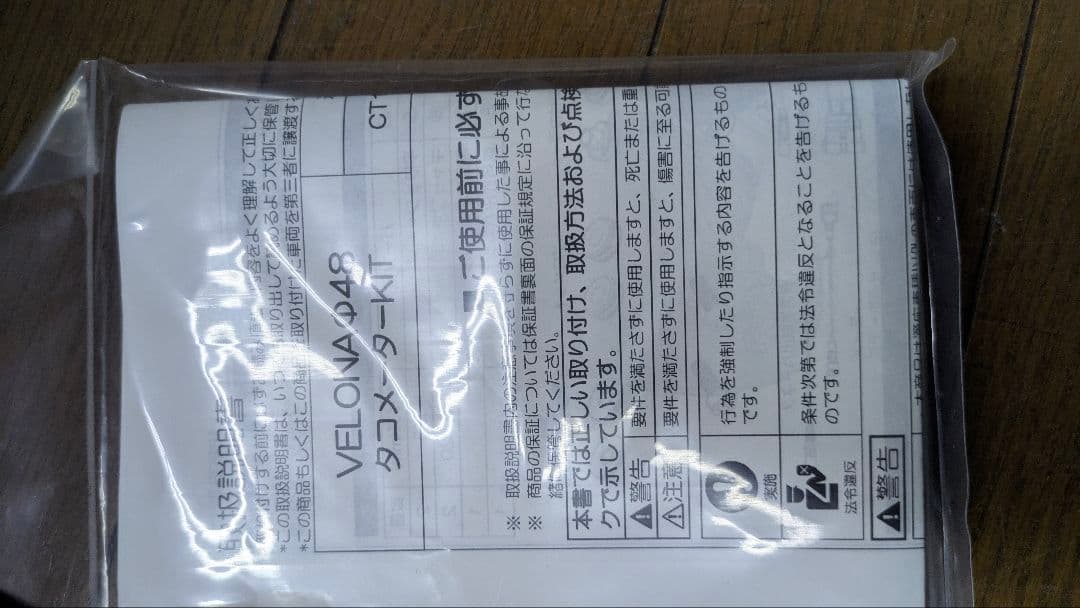 取扱説明書
*この取扱説明書は、いつ
取り出して
るよう大切に保管
*この商品もしくはこの商品
取り付けた車両を第三者に譲渡す
VELONA Φ48
タコメーターKIT
CT
■ご使用前に必ず
※ 取扱説明書内の注意事項を守らずに使用した事による事故
※ 商品の保証については保証書裏面の保証規定に沿って行な
緒に保管してください。
本書では正しい取り付け、取扱方法および点検
クで示しています。
警告
要件を満たさずに使用しますと、死亡または重
注意
要件を満たさずに使用しますと、傷害に至る可
実施
行為を強制したり指示する内容を告げるもの
です。
法令違反
条件次第では法令違反となることを告げるも
のです。
警告